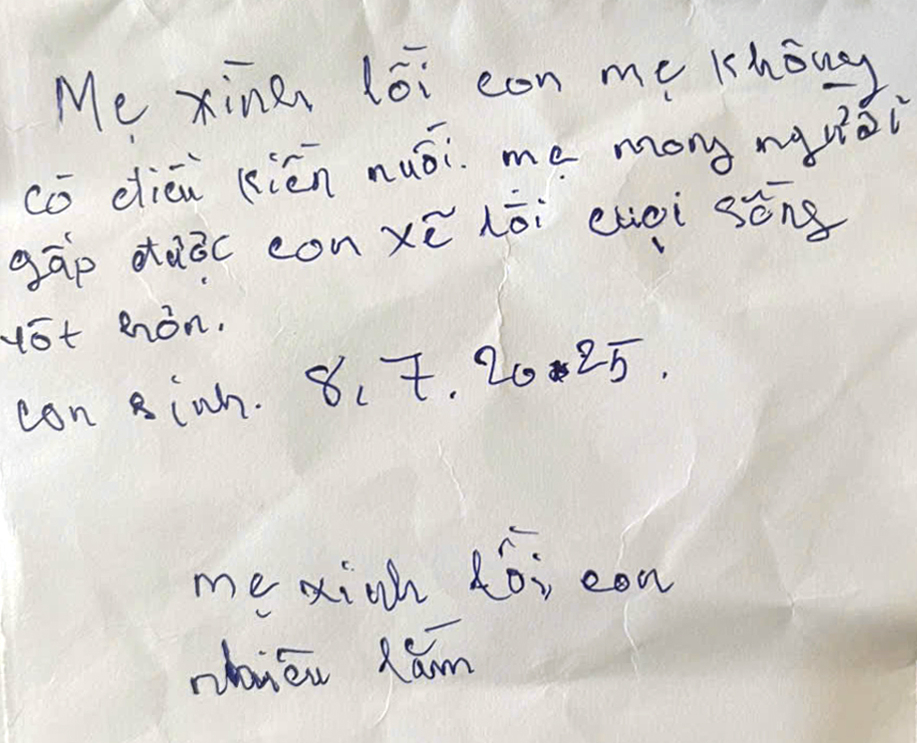 Mẹ xình lỗi con mẹ không
có điều kiên nuôi. mẹ mong người
gấp được con xẽ lỗi cuọi sống
tốt hơn.
con sinh. 8, 7. 2025.
mẹ xinh lỗi con
nhiều lắm